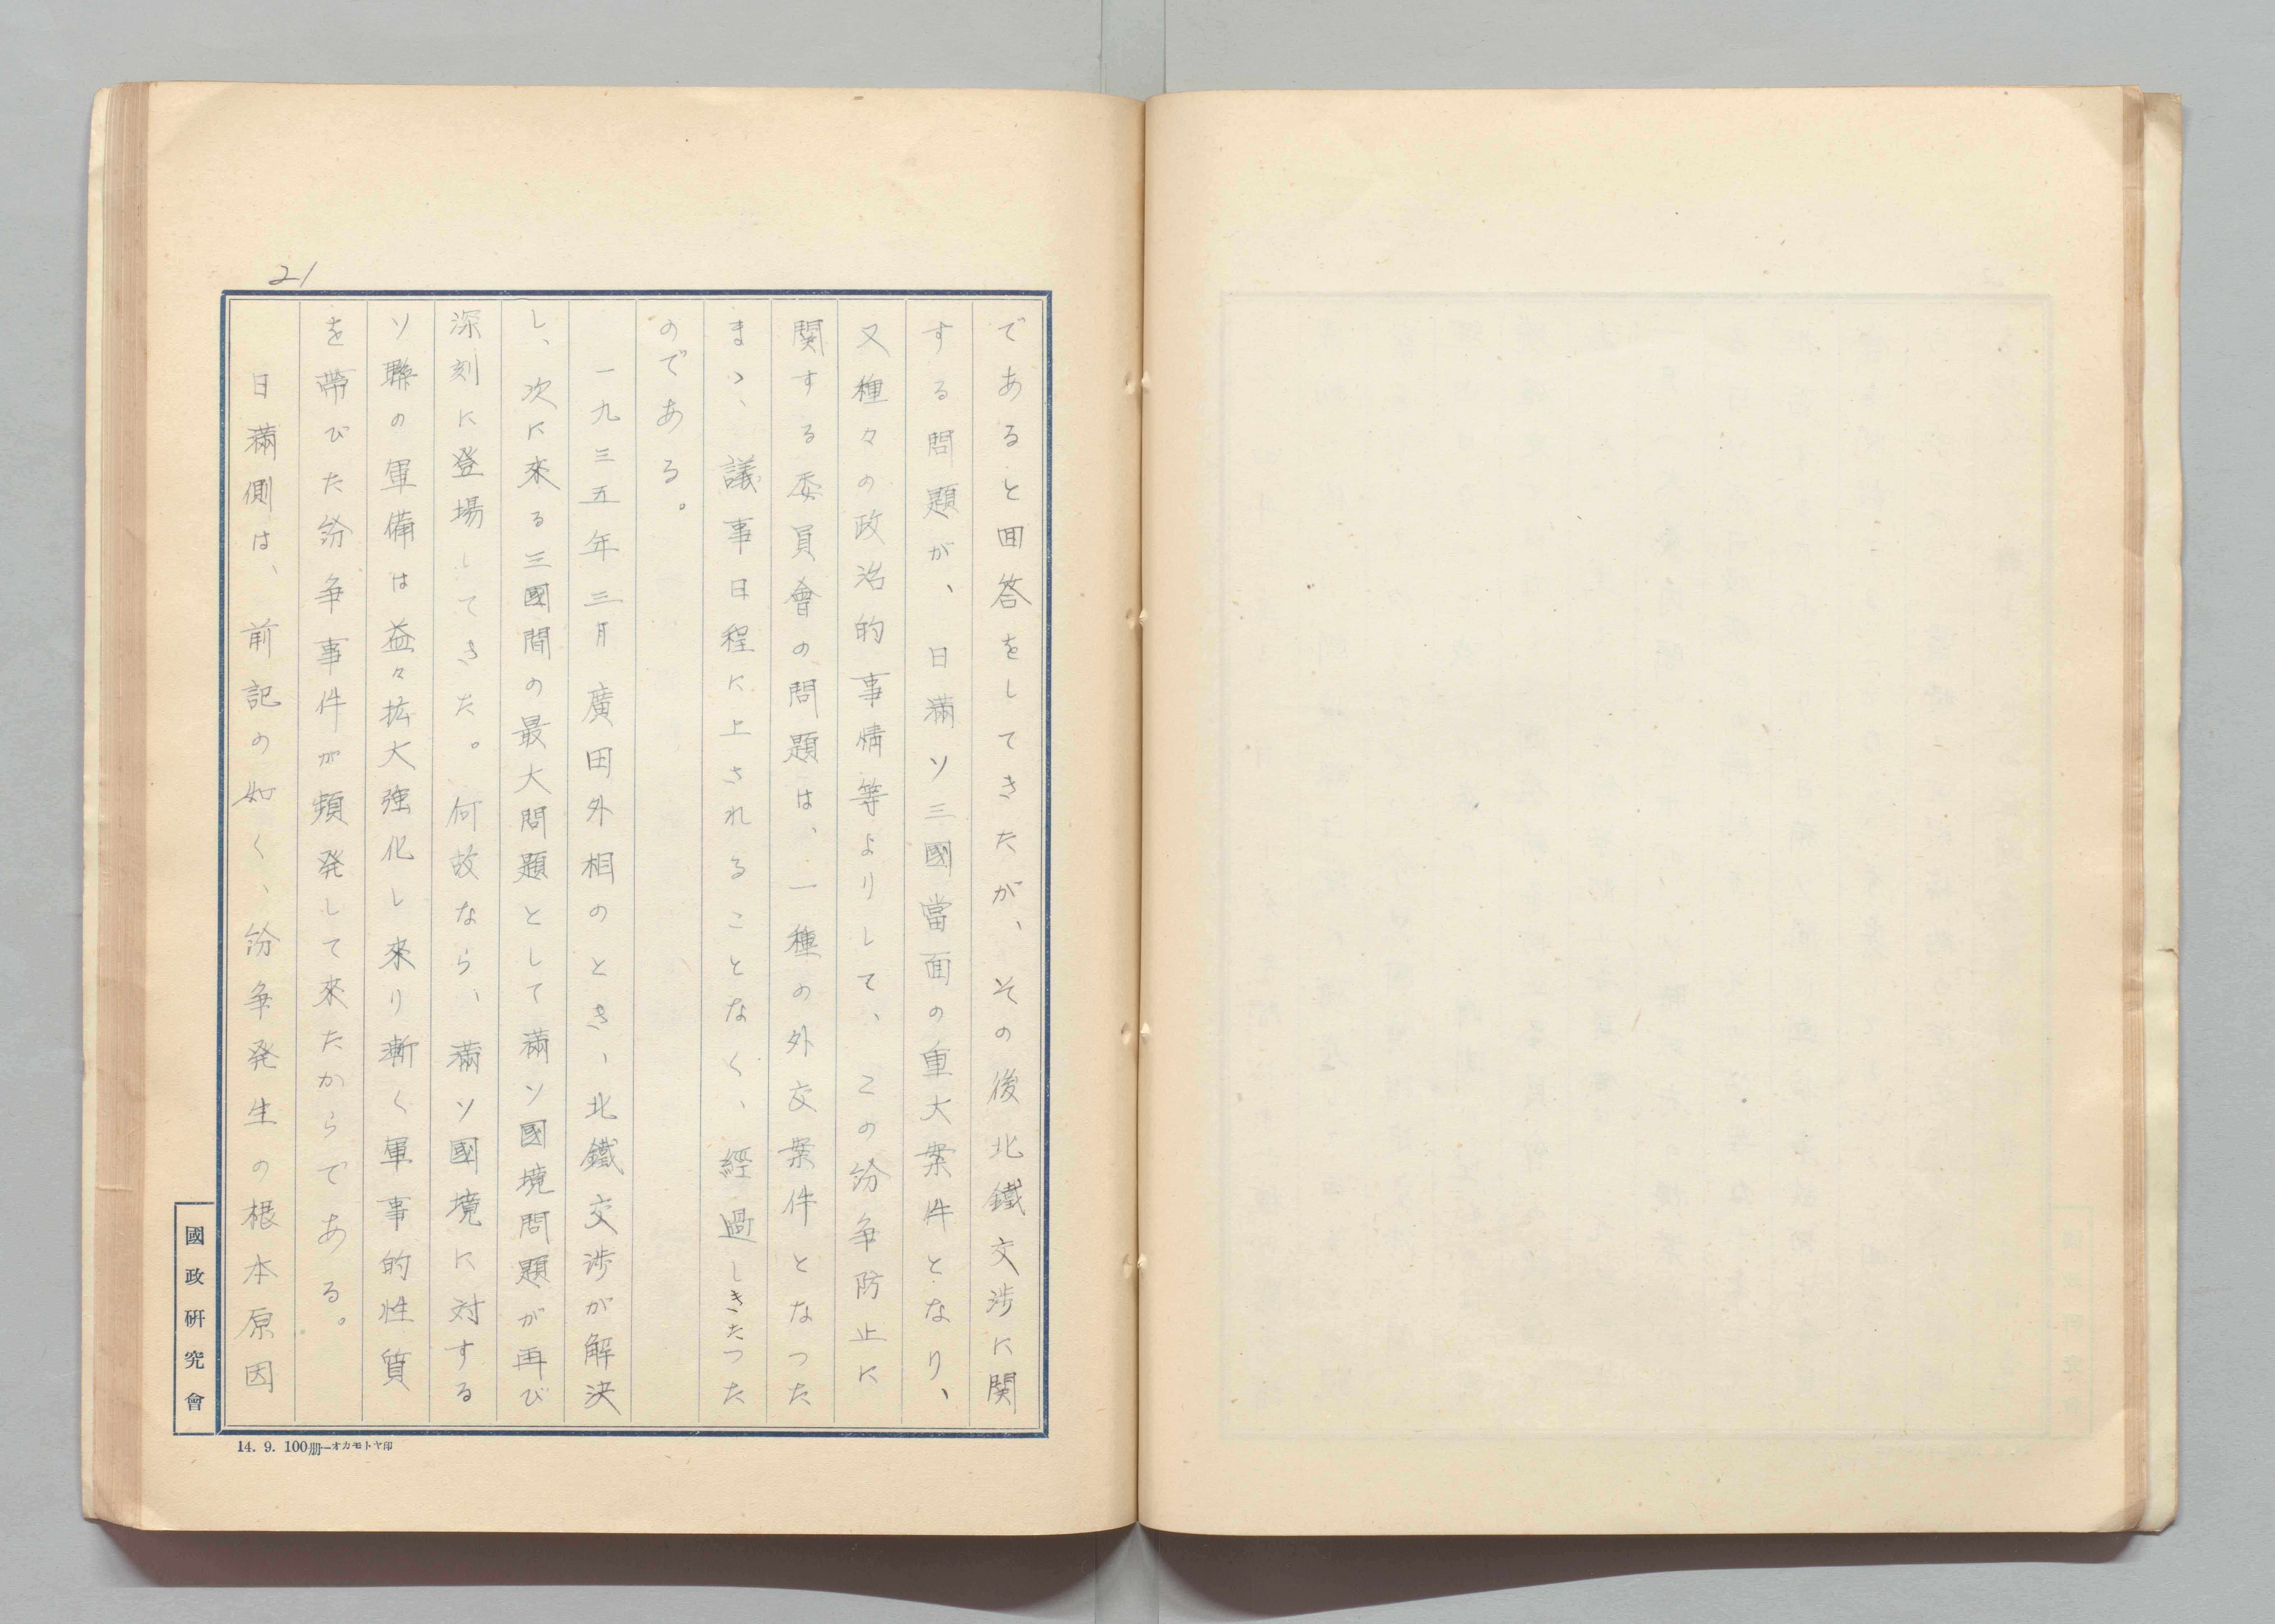 21
であると回答をしてきたが、その後北鐵交渉に関
する問題が、日満ソ三國當面の重大案件となり、
又種々の政治的事情等よりして、この紛争防止に
関する委員會の問題は、一種の外交案件となつた
まゝ、議事日程に上されることなく、經過しきたつた
のである。
一九三五年三月廣田外相のとき、北鐵交渉が解決
し、次に來る三國間の最大問題として満ソ國境問題が再び
深刻に登場してきた。何故なら、満ソ國境に対する
ソ聯の軍備は益々拡大強化し來り漸く軍事的性質
を帶びた紛争事件が頻発して來たからである。
日満側は、前記の如く、紛争発生の根本原因
國政研究會
14. 9. 100冊—オカモトヤ印